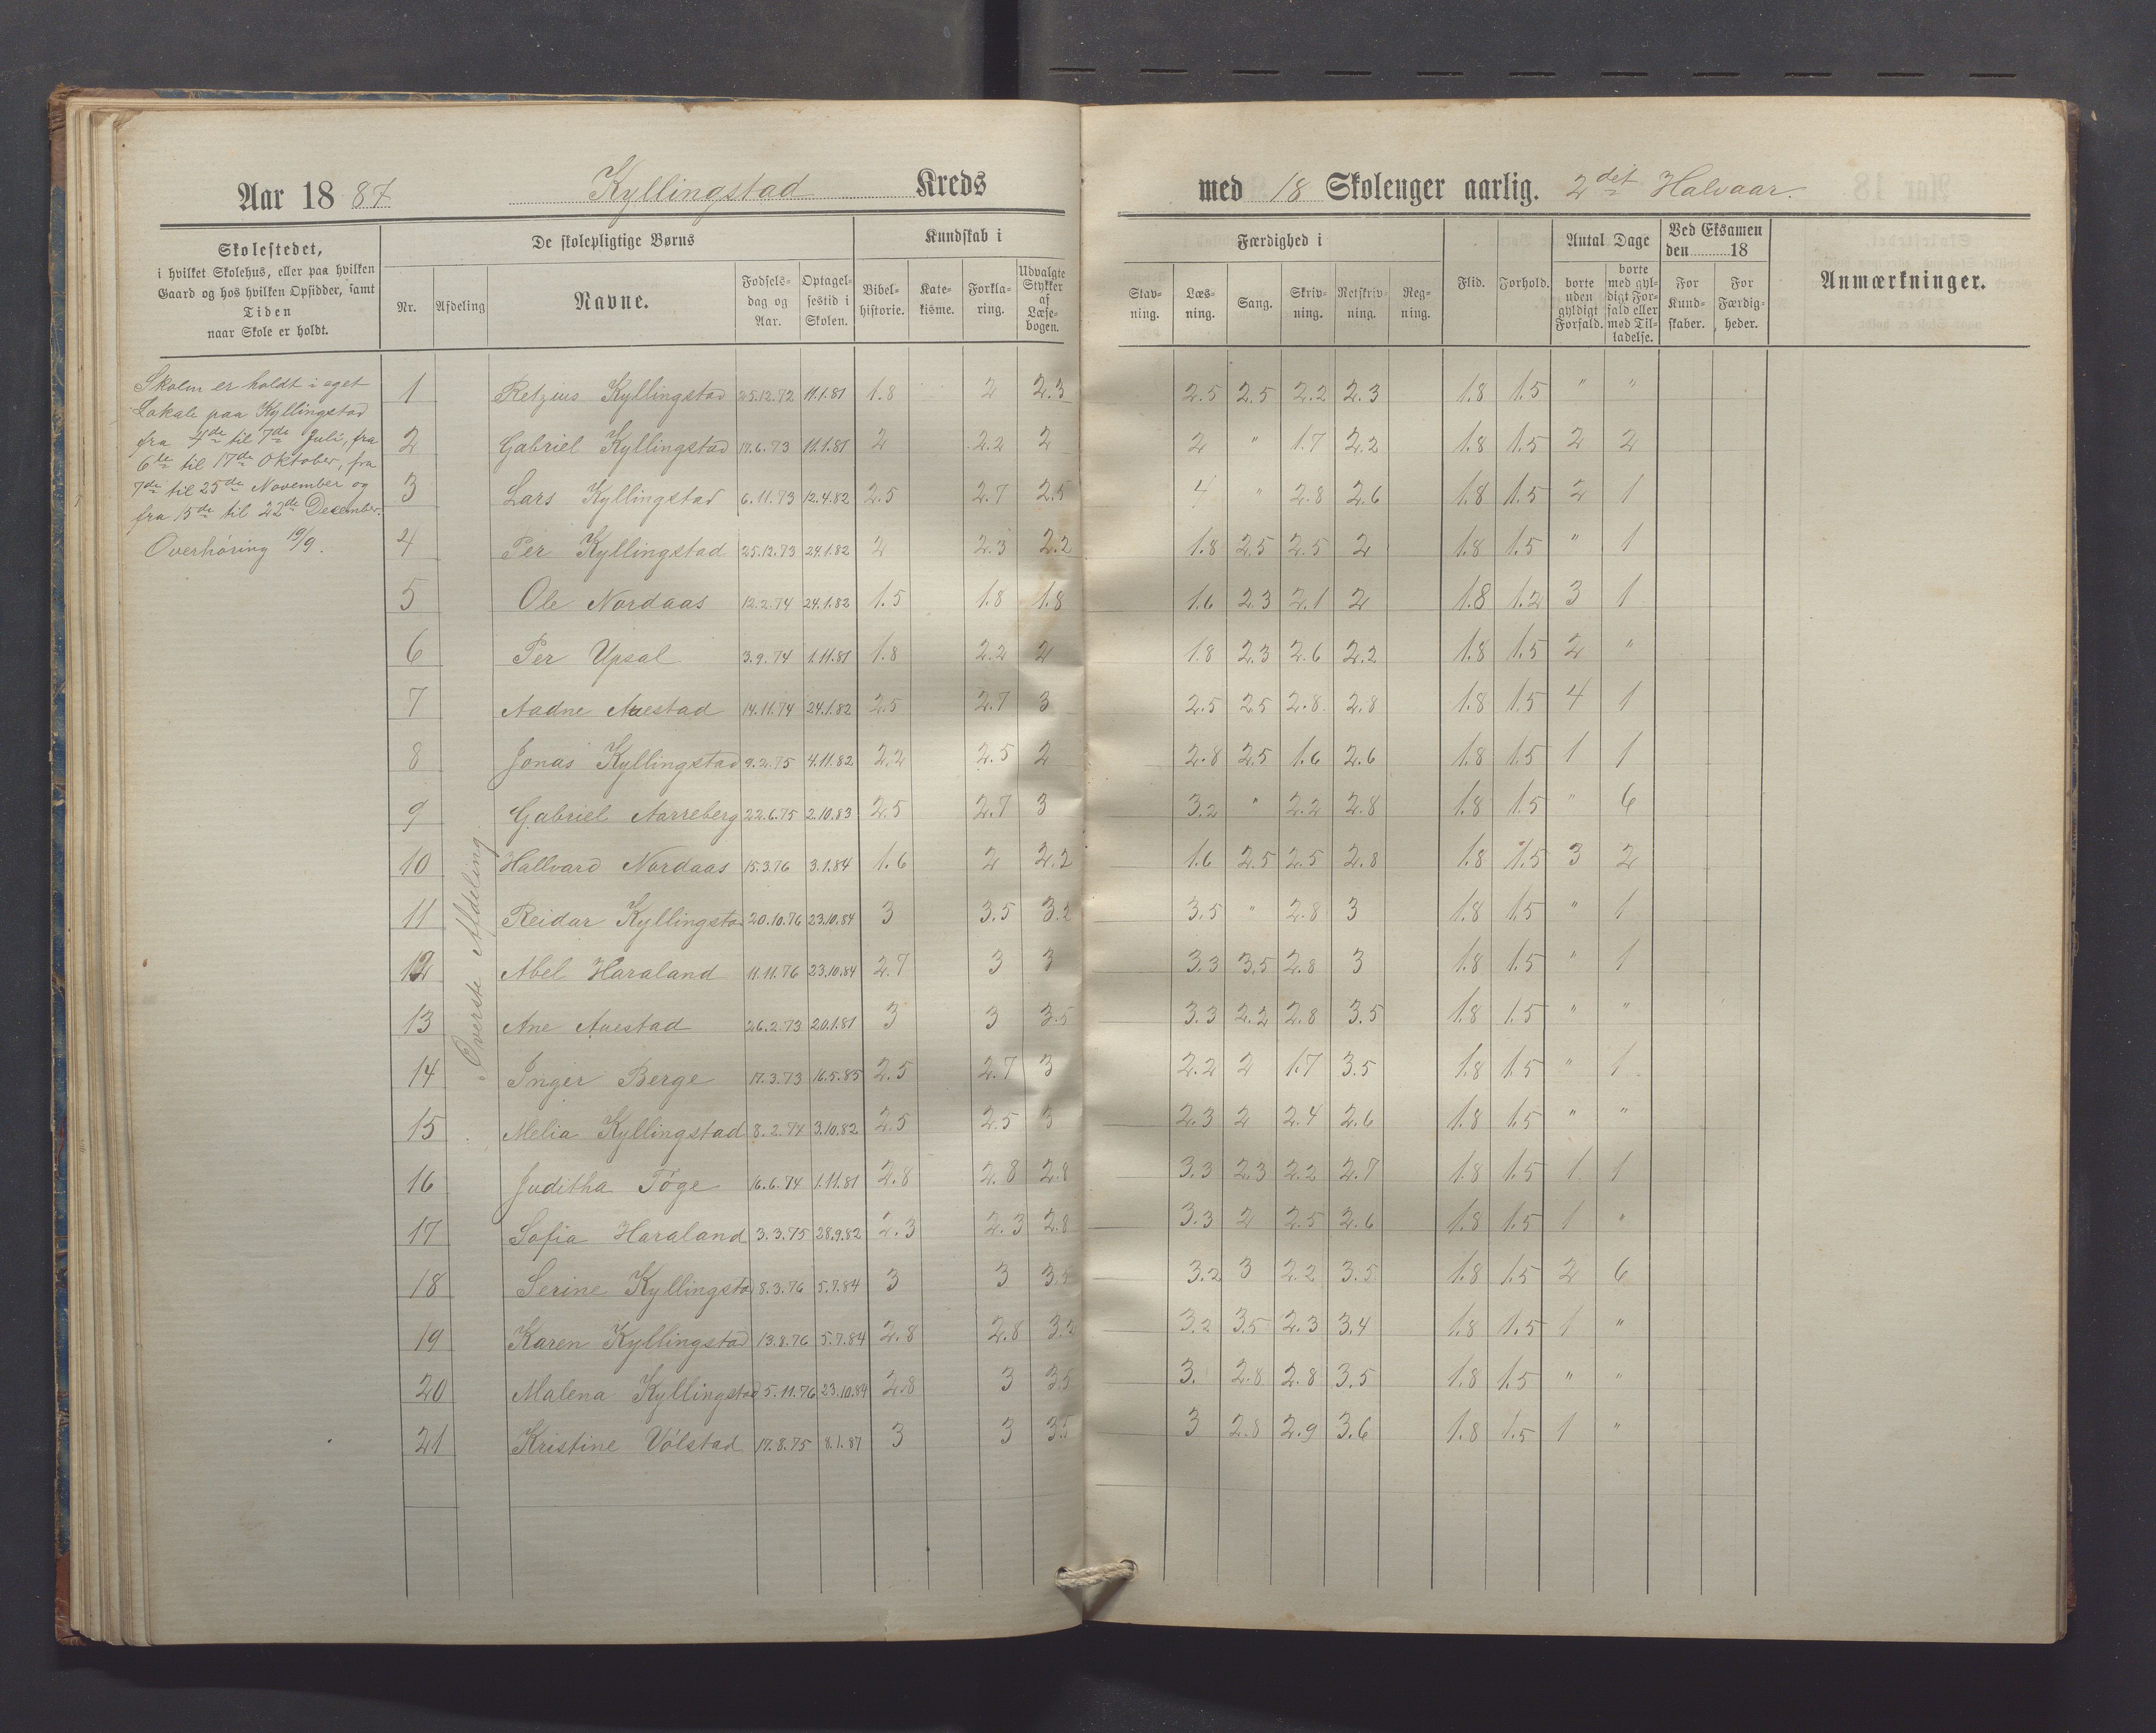 Aar 1887 Kyllingstad Kreds med 18 Skoleuger aarlig. 2det Halvaar.
Skolestedet,
i hvilket Skolehus, eller paa hvilken
Gaard og hos hvilken Opsidder, samt
Tiden
naar Skole er holdt.
De skolepligtige Børns
Nr. Afdeling Navne. Fødsels-dag og Aar. Optagel-sestid i Skolen.
Kundskab i
Bibel-historie. Kate-kisme. Forkla-ring. Udvalgte Stykker af Læse-bogen.
Færdighed i
Stav-ning. Læs-ning. Sang. Skriv-ning. Retskriv-ning. Reg-ning.
Flid. Forhold.
Antal Dage
borte uden gyldigt Forfald. borte med gyl-digt For-fald eller med Til-ladelse.
Ved Eksamen
den 18
For Kund-skaber. For Færdig-heder.
Anmærkninger.
Skolen er holdt i eget
Lokale paa Kyllingstad
fra 4de til 7de Juli, fra
6te til 17de Oktober, fra
7de til 25de November og
fra 15de til 22de December.
Overhøring 19/9.
Øverste Afdeling.
1 Retzius Kyllingstad 25.12.72 11.1.81 1.8 2 2.3 2.5 2.5 2.2 2.3 1.8 1.5 " "
2 Gabriel Kyllingstad 17.6.73 11.1.81 2 2.2 2 2 " 1.7 2.2 1.8 1.5 2 2
3 Lars Kyllingstad 6.11.73 12.4.82 2.5 2.7 2.5 4 " 2.8 2.6 1.8 1.5 2 1
4 Per Kyllingstad 25.12.73 24.1.82 2 2.3 2.2 1.8 2.5 2.5 2 1.8 1.5 " 1
5 Ole Nordaas 12.2.74 24.1.82 1.5 1.8 1.8 1.6 2.3 2.1 2 1.8 1.2 3 1
6 Per Upsal 3.9.74 1.11.81 1.8 2.2 2 1.8 2.3 2.6 2.2 1.8 1.5 2 "
7 Aadne Auestad 14.11.74 24.1.82 2.5 2.7 3 2.5 2.5 2.8 2.8 1.8 1.5 4 1
8 Jonas Kyllingstad 9.2.75 4.11.82 2.2 2.5 2 2.8 2.5 1.6 2.6 1.8 1.5 1 1
9 Gabriel Aarreberg 22.6.75 2.10.83 2.5 2.7 3 3.2 " 2.2 2.8 1.8 1.5 " 6
10 Hallvard Nordaas 15.3.76 3.1.84 1.6 2 2.2 1.6 2.5 2.5 2.8 1.8 1.5 3 2
11 Reidar Kyllingstad 20.10.76 23.10.84 3 3.5 3.2 3.5 " 2.8 3 1.8 1.5 " 1
12 Abel Haraland 11.11.76 23.10.84 2.7 3 3 3.3 3.5 2.8 3 1.8 1.5 " 1
13 Ane Auestad 26.2.73 20.1.81 3 3 3.5 3.3 2.2 2.8 3.5 1.8 1.5 " "
14 Inger Berge 17.3.73 16.5.85 2.5 2.7 3 2.2 2 1.7 3.5 1.8 1.5 " 1
15 Melia Kyllingstad 8.2.74 3.10.82 2.5 2.5 3 2.3 2 2.4 2.6 1.8 1.5 " "
16 Juditha Tøge 16.6.74 1.11.81 2.8 2.8 2.8 3.3 2.3 2.2 2.7 1.8 1.5 1 1
17 Sofia Haraland 3.3.75 28.9.82 2.3 2.3 2.8 3.3 2 2.5 2.6 1.8 1.5 1 "
18 Serine Kyllingstad 8.3.76 5.7.84 3 3 3.5 3.2 3 2.2 3.5 1.8 1.5 2 6
19 Karen Kyllingstad 13.8.76 5.7.84 2.8 2.8 3.2 3.2 3.5 2.3 3.4 1.8 1.5 1 "
20 Malena Kyllingstad 5.11.76 23.10.84 2.8 3 3.5 3. 2.8 2.8 3.5 1.8 1.5 " "
21 Kristine Vólstad 17.8.75 8.1.87 3 3 3.5 3 2.8 2.9 3.6 1.8 1.5 1 "